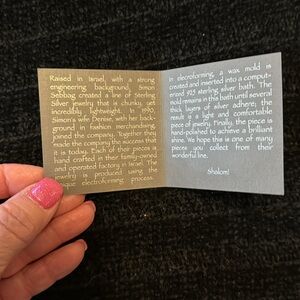 Raised in Israel, with a strong
engineering background, Simon
Sebbag created a line of Sterling
Silver jewelry that is chunky, yet
incredibly lightweight. In 1990,
Simon's wife Denise, with her back-
ground in fashion merchandising,
joined the company. Together they
made the company the success that
it is today. Each of their pieces is
hand crafted in their family-owned
and operated factory in Israel. The
jewelry is produced using the
unique electroforming process.
In elecroforming, a wax mold is
created and inserted into a comput-
erized .925 sterling silver bath. The
mold remains in this bath until several
thick layers of silver adhere; the
result is a light and comfortable
piece of jewelry. Finally, the piece is
hand-polished to achieve a brilliant
shine. We hope this is one of many
pieces you collect from their
wonderful line.
Shalom!